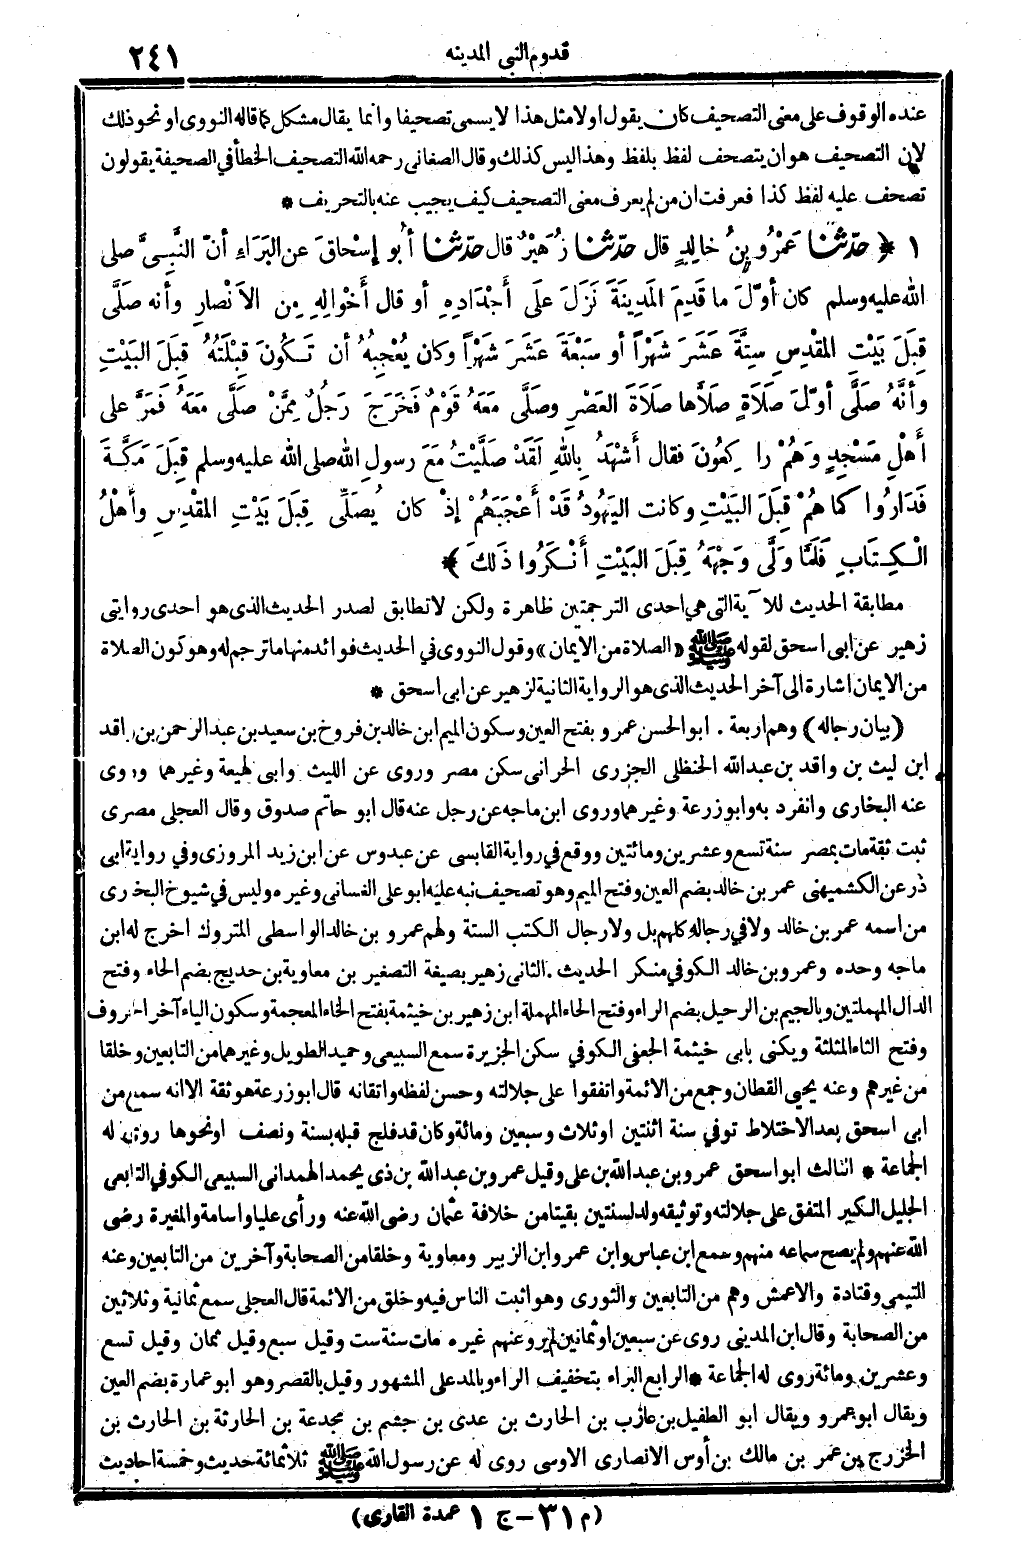 قدوم النبى المدينه
٢٤١
عنده الوقوف على معنى التصحيف كان يقول اولا مثل هذا لا يسمى تصحيفا وانما يقال مشكل كما قاله النووى او نحو ذلك
لان التصحيف هو ان يتصحف لفظ بلفظ وهذا ليس كذلك وقال الصغانى رحمه الله التصحيف الخطأ في الصحيفة يقولون
تصحف عليه لفظ كذا فعرفت ان من لم يعرف معنى التصحيف كيف يجيب عنه بالتحريف *
١ ﴿ حدّثنا عَمْرُو بنُ خالِدٍ قال حدّثنا زُهَيْرٌ قال حدّثنا أَبُو إسْحاقَ عن البَرَاءِ أنّ النَّبِىَّ صلى
الله عليه وسلم كان أوّلَ ما قَدِمَ المَدِينَةَ نَزَلَ علَى أجْدَادِهِ أو قال أخْوالِهِ مِن الأنْصارِ وأنه صَلَّى
قِبَلَ بَيْتِ المَقْدِسِ سِتَّةَ عَشَرَ شَهْراً أو سَبْعَةَ عَشَرَ شَهْراً وكان يُعْجِبُهُ أن تَكُونَ قِبْلَتُهُ قِبَلَ البَيْتِ
وأنَّهُ صَلَّى أوّلَ صَلَاةٍ صَلَّاها صَلَاةَ العَصْرِ وصَلَّى مَعَهُ قَوْمٌ فَخَرَجَ رَجُلٌ مِمَّنْ صَلَّى مَعَهُ فَمَرَّ على
أهْلِ مَسْجِدٍ وَهُمْ رَاكِعُونَ فقال أشْهَدُ بِاللهِ لَقَدْ صَلَّيْتُ مَعَ رسولِ اللهِ صلى الله عليه وسلم قِبَلَ مَكَّةَ
فَدَارُوا كَما هُمْ قِبَلَ البَيْتِ وكانت اليَهُودُ قَدْ أعْجَبَهُمْ إذْ كان يُصَلِّى قِبَلَ بَيْتِ المَقْدِسِ وأهْلُ
الكِتَابِ فَلَمَّا وَلَّى وَجْهَهُ قِبَلَ البَيْتِ أنْكَرُوا ذَلكَ ﴾*
مطابقة الحديث للآية التي هي احدى الترجمتين ظاهرة ولكن لا تطابق لصدر الحديث الذى هو احدى روايتى
زهير عن ابى اسحق لقوله ﷺ «الصلاة من الايمان» وقول النووى في الحديث فوائد منها ما ترجم له وهو كون الصلاة
من الايمان اشارة الى آخر الحديث الذى هو الرواية الثانية لزهير عن ابى اسحق *
(بيان رجاله) وهم اربعة . ابو الحسن عمرو بفتح العين وسكون الميم ابن خالد بن فروخ بن سعيد بن عبد الرحمن بن واقد
ابن ليث بن واقد بن عبد الله الحنظلى الجزرى الحرانى سكن مصر وروى عن الليث وابى لهيعة وغيرهما وروى
عنه البخارى وانفرد به وابو زرعة وغيرهما وروى ابن ماجه عن رجل عنه قال ابو حاتم صدوق وقال العجلى مصرى
ثبت ثقة مات بمصر سنة تسع وعشرين ومائتين ووقع في رواية القابسى عن عبدوس عن ابن زيد المروزى وفي رواية ابى
ذر عن الكشميهنى عمر بن خالد بضم العين وفتح الميم وهو تصحيف نبه عليه ابو على الغسانى وغيره وليس في شيوخ البخارى
من اسمه عمر بن خالد ولا في رجاله كلهم بل ولا رجال الكتب الستة ولهم عمرو بن خالد الواسطى المتروك اخرج له ابن
ماجه وحده وعمرو بن خالد الكوفي منكر الحديث . الثانى زهير بصيغة التصغير بن معاوية بن حديج بضم الحاء وفتح
الدال المهملتين وبالجيم بن الرحيل بضم الراء وفتح الحاء المهملة ابن زهير بن خيثمة بفتح الخاء المعجمة وسكون الياء آخر الحروف
وفتح الثاء المثلثة ويكنى بابى خيثمة الجعفى الكوفي سكن الجزيرة سمع السبيعى وحميد الطويل وغيرهما من التابعين وخلقا
من غيرهم وعنه يحيى القطان وجمع من الائمة واتفقوا على جلالته وحسن لفظه واتقانه قال ابو زرعة هو ثقة الا انه سمع من
ابى اسحق بعد الاختلاط توفي سنة اثنتين او ثلاث وسبعين ومائة وكان قد فلج قبله بسنة ونصف او نحوها روى له
الجماعة * الثالث ابو اسحق عمرو بن عبد الله بن على وقيل عمرو بن عبد الله بن ذى يحمد الهمدانى السبيعى الكوفي التابعى
الجليل الكبير المتفق على جلالته وتوثيقه ولد لسنتين بقيتا من خلافة عثمان رضى الله عنه ورأى عليا واسامة والمغيرة رضى
الله عنهم ولم يصح سماعه منهم وسمع ابن عباس وابن عمر وابن الزبير ومعاوية وخلقا من الصحابة وآخرين من التابعين وعنه
التيمى وقتادة والاعمش وهم من التابعين والثورى وهو اثبت الناس فيه وخلق من الائمة قال العجلى سمع ثمانية وثلاثين
من الصحابة وقال ابن المدينى روى عن سبعين او ثمانين لم يرو عنهم غيره مات سنة ست وقيل سبع وقيل ثمان وقيل تسع
وعشرين ومائة روى له الجماعة * الرابع البراء بتخفيف الراء وبالمد على المشهور وقيل بالقصر وهو ابو عمارة بضم العين
ويقال ابو عمرو ويقال ابو الطفيل بن عازب بن الحارث بن عدى بن جشم بن مجدعة بن الحارثة بن الحارث بن
الخزرج بن عمر بن مالك بن أوس الانصارى الاوسى روى له عن رسول الله ﷺ ثلاثمائة حديث وخمسة احاديث
(م ٣١ – ج ١ عمدة القارى)